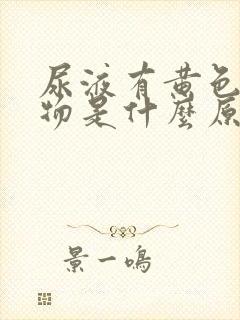 尿液有黄色
物是什麽原
景一鳴